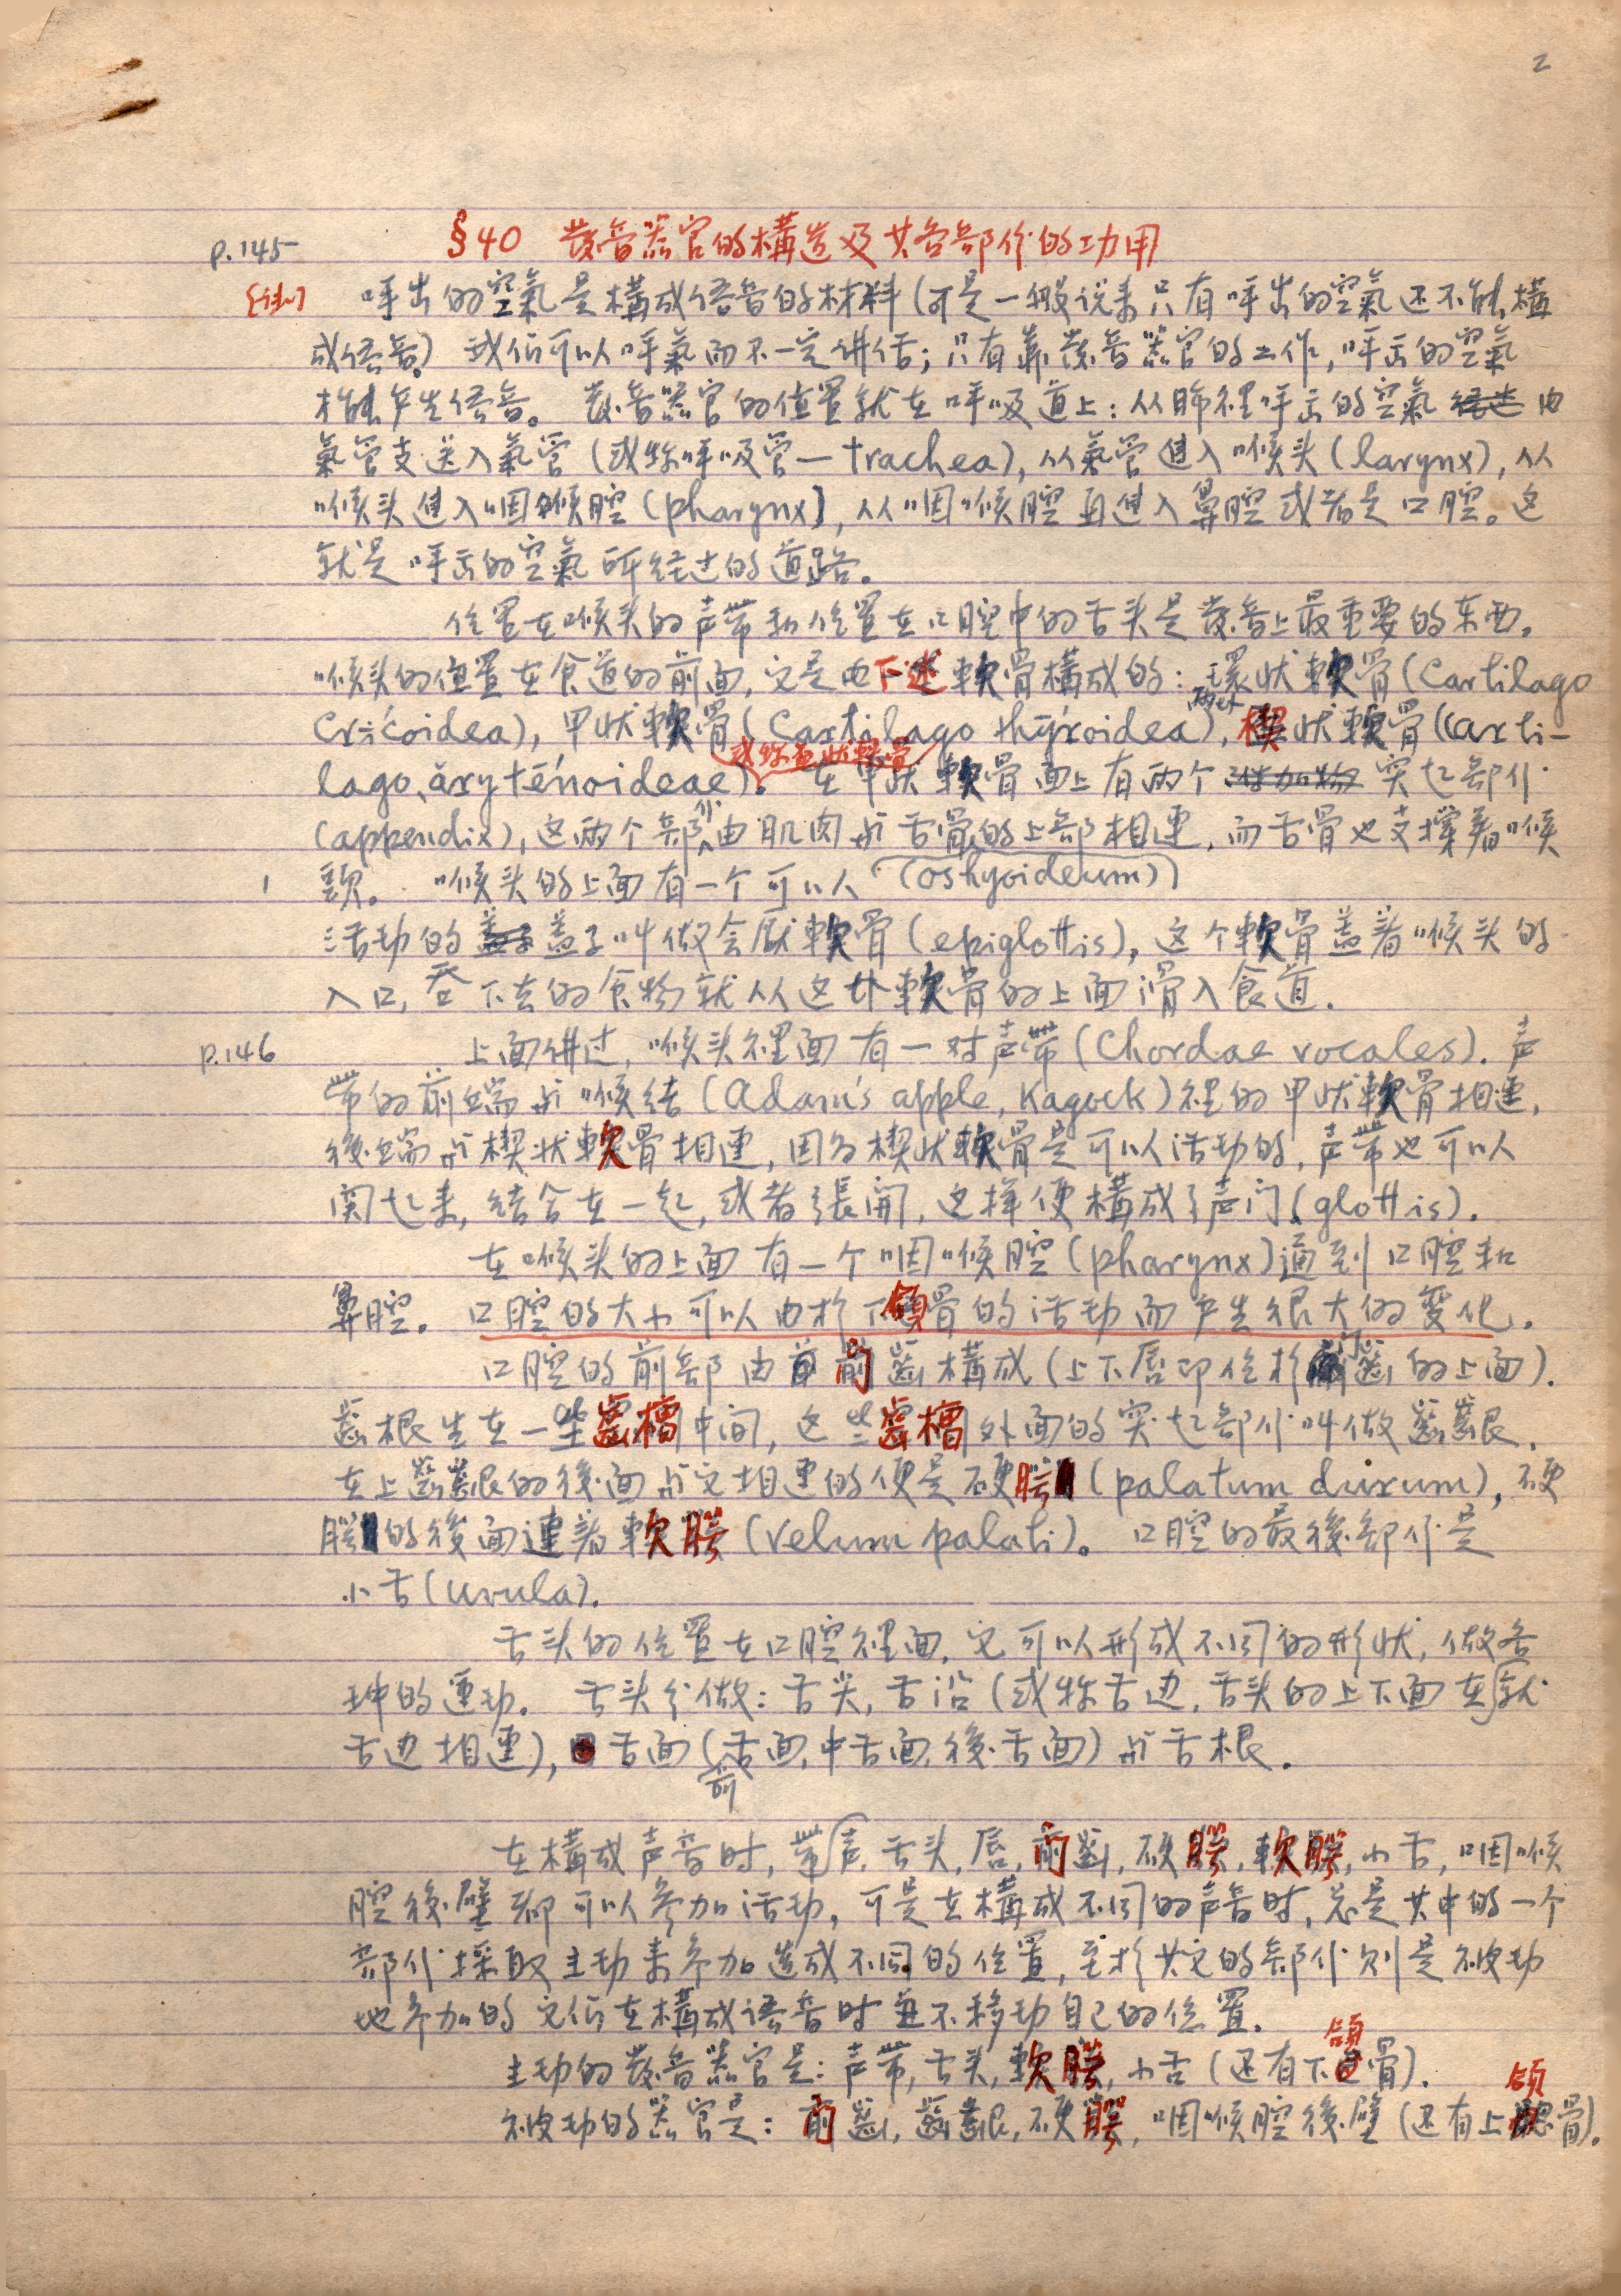 2
p.145 §40 發音器官的構造及其各部份的功用
呼出的空氣是構成語音的材料(可是一般说来只有呼出的空氣还不能構
成语音) 我们可以呼氣而不一定讲话;只有靠發音器官的工作,呼出的空氣
才能产生语音。 發音器官的位置就在呼吸道上:从肺裡呼出的空氣经过由
氣管支送入氣管(或称呼吸管—trachea),从氣管進入喉头(larynx),从
喉头進入咽喉腔(pharynx),从咽喉腔再進入鼻腔或者是口腔。这
就是呼出的空氣所经过的道路。
位置在喉头的声带和位置在口腔中的舌头是發音上最重要的东西。
喉头的位置在食道的前面,它是由下述軟骨構成的:環状軟骨(Cartilago
Cricoidea),甲状軟骨(Cartilago thyroidea),两块楔状軟骨(Carti-
lago arytenoideae)。或称壶状軟骨 在甲状軟骨面上有两个附加物突起部份
(appendix),这两个部份由肌肉与舌骨的上部相連,而舌骨也支撑着喉
頭。 喉头的上面有一个可以 (oshyoideum)
活动的盖子盖子叫做会厭軟骨(epiglottis),这个軟骨盖着喉头的
入口,吞下去的食物就从这个軟骨的上面滑入食道.
p.146 上面讲过,喉头裡面有一对声带(Chordae vocales).声
带的前端与喉结(Adam's apple, Kagock)裡的甲状軟骨相連,
後端与楔状軟骨相連,因为楔状軟骨是可以活动的,声带也可以
関起来,结合在一起,或者張開,这样便構成了声门(glottis).
在喉头的上面有一个咽喉腔(pharynx)通到口腔和
鼻腔. 口腔的大小可以由於下頜骨的活动而产生很大的变化.
口腔的前部由前齒構成(上下唇即位於门齒的上面).
齒根生在一些齒槽中间,这些齒槽外面的突起部份叫做齒齦.
在上齒齦的後面与它相連的便是硬腭(palatum durum),硬
腭的後面連着軟腭(Velum palati)。 口腔的最後部份是
小舌(uvula).
舌头的位置在口腔裡面,它可以形成不同的形状,做各
种的運动. 舌头分做:舌尖,舌沿(或称舌边,舌头的上下面在就
舌边相連),舌面(前舌面,中舌面,後舌面)与舌根.
在構成声音时,带声,舌头,唇,前齒,硬腭,軟腭,小舌,咽喉
腔後壁都可以参加活动,可是在構成不同的声音时,总是其中的一个
部份採取主动来参加造成不同的位置,至於其它的部份则是被动
地参加的它们在構成语音时並不移动自己的位置.
主动的發音器官是:声带,舌头,軟腭,小舌(还有下頜骨).
被动的器官是:前齒,齒齦,硬腭,咽喉腔後壁(还有上頜骨).